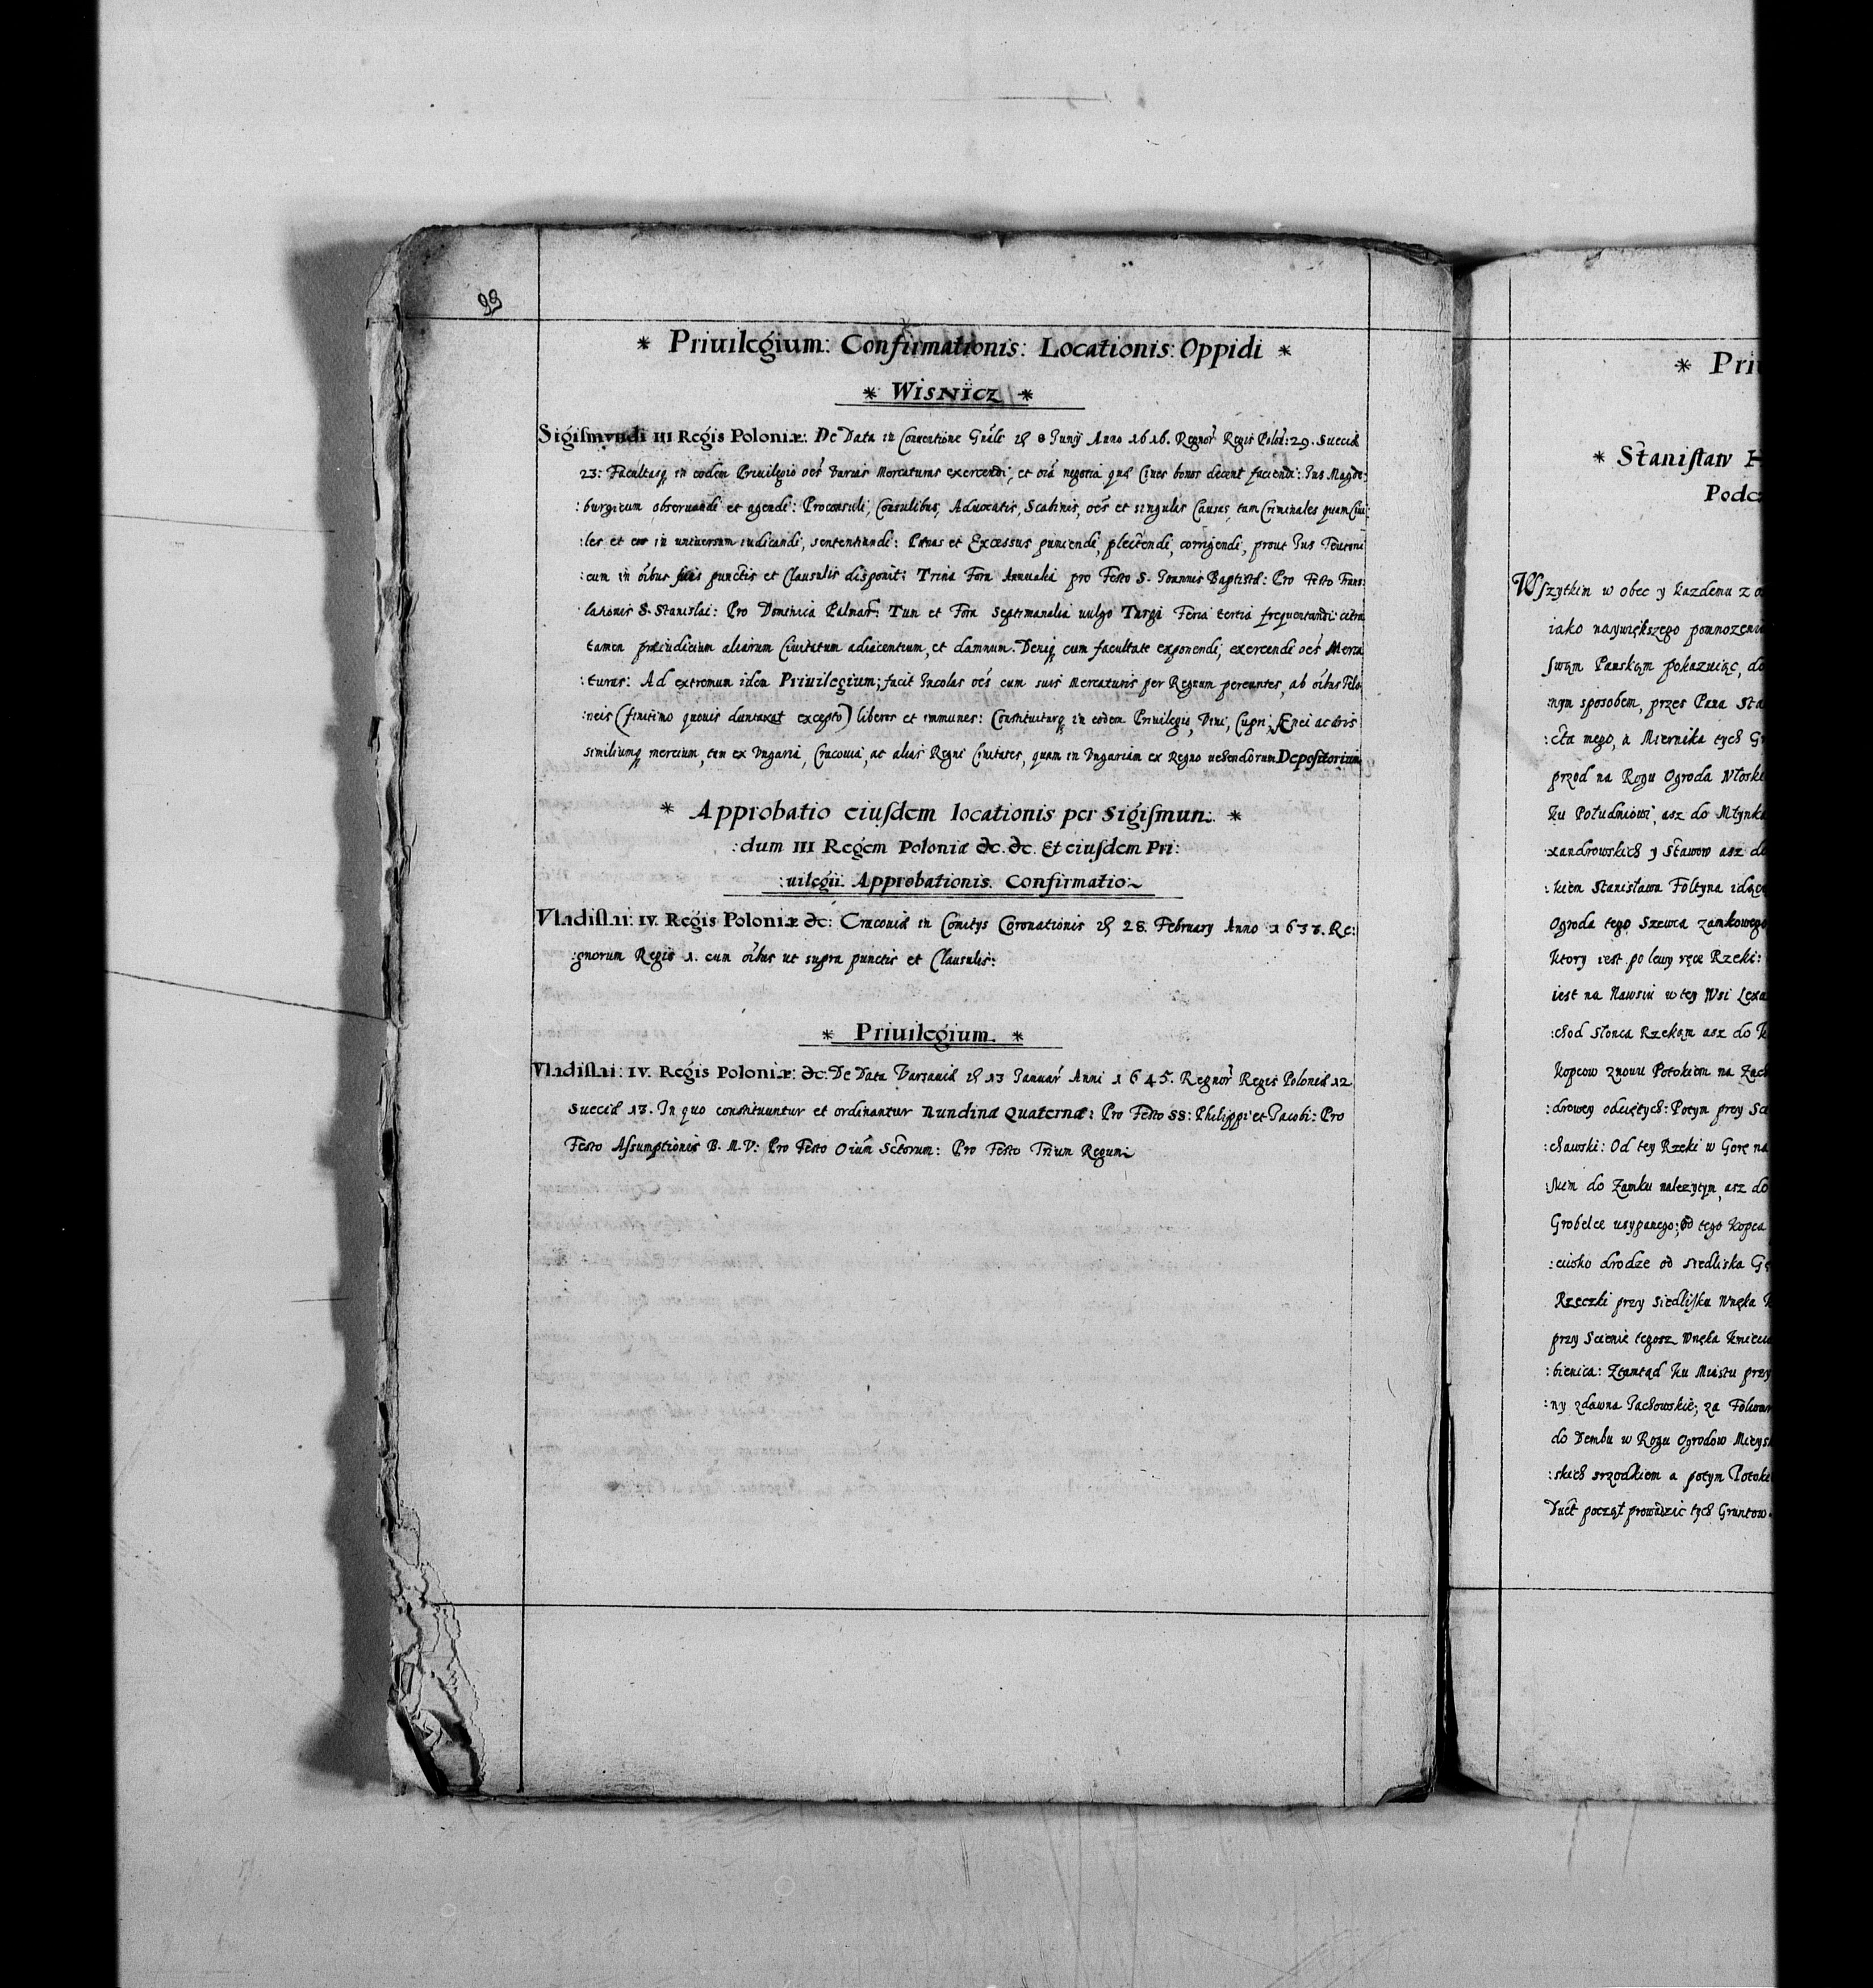 93
* Priuilegium: Confirmationis: Locationis: Oppidi *
* WisNicz *
Sigiſmvndi III Regis Poloniæ: De Data in Conuentione Gnäli 8 Junÿ Anno 1616. Regnor Regis Polon: 29. Sueciæ
23: Facultasq in eodem Priuilegio oēs varias Mercaturas exercendi, et oīa negotia quæ Ciues bonos decent faciendi: Jus Magde:
:burgicum obseruandi et agendi: Proconsuli, Consulibus, Aduocatis, Scabinis, oēs et singulas Causas, tam Criminales quam Ciui:
:les et eos in uniuersum iudicandi, sententiandi: Pænas et Excessus puniendi, plectendi, corrigendi, prout Jus Teutoni
:cum in oībus suis punctis et Clausulis disponit: Trina Fora Annualia pro Festo S. Joannis Baptistæ: Pro Festo Trans:
:lationis S. Stanislai: Pro Dominica Palmar: Tum et Fora Septimanalia uulgo Targi Feria tertia frequentandi: citra
tamen præiudicium aliarum Ciuitatum adiacentium, et damnum. Deniq cum facultate exponendi, exercendi oēs Merca
:turas: Ad extremum idem Priuilegium; facit Incolas oēs cum suis Mercaturis per Regnum pereuntes, ab oībus Telo
:neis (finitimo quouis duntaxat excepto) liberos et immunes: Constituiturq in eodem Priuilegio, Vini, Cupri, Ænei ac
similiumq mercium, tam ex Vngaria, Cracouia, ac alias Regni Ciuitates, quam in Vngariam ex Regno uehendorum Depositorium
* Approbatio eiuſdem locationis per Sigiſmun: *
:dum III Regem Poloniæ &c. &c. Et eiuſdem Pri:
:uilegii Approbationis Confirmatio
Vladiſlai: IV. Regis Poloniæ &c: Cracouiæ in Comitÿs Coronationis 28 February Anno 1633. Re:
:gnorum Regis 1. cum oībus ut supra punctis et Clausulis:
* Priuilegium *
Vladiſlai: IV. Regis Poloniæ: &c: De Data Varsauiæ 13 Januar Anni 1645. Regnor Regis Poloniæ 12
Sueciæ 13. In quo constituuntur et ordinantur Nundinæ Quaternæ: Pro Festo SS: Philippi et Jacobi: Pro
Festo Aſsumptionis B. M. V: Pro Festo Oīum Sctorum: Pro Festo Trium Regum
* Priu
* Staniſlaw
Podcz
Wſzytkim w obec y kazdemu z o
iako naywiększego pomnozenia
swąm Panskąm pokazuiąc, do
nym sposobem, przes Pana Sta
:cta mego, a Miernika tych Gr
przod na Rogu Ogroda Włoske
ku Południowi, asz do Młynka
:xandrowskich y Stawow asz do
:kiem Stanisława Foltyna idąc
Ogroda tego Szewca zamkowego
Ktory iest po lewy ręce Rzeki:
iest na Nawsiu w tey Wsi Lexa
:chod Słonca Rzekąm asz do
Kopcow znowu Potokiem na Zach
:drowey odciętych: Potym przy
:chawski: Od tey Rzeki w Gorę na
:skim do Zamku nalezytym, asz do
Grobelce usypanego; od tego Kopca
:cuisko drodze od siedliska
Rzeczki przy Siedlisku Wnęka
przy Scienie tegosz Wnęka Kmiecia
:bienica: Ztamtąd ku Miastu przy
:ny zdawna Jachowskie, za Folwar
do Dembu w Rogu Ogrodow Mieys
:skich srzodkiem a potym Potoki
Duct począł prowadzic tych Gruntow.